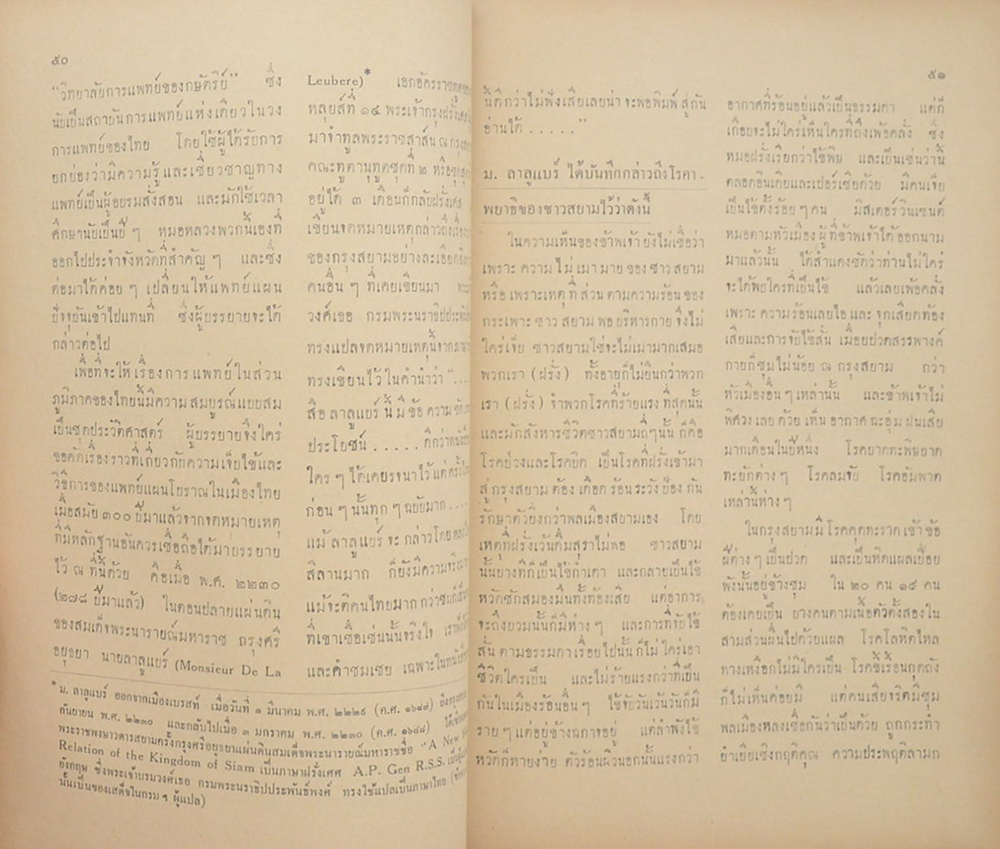 ๙๐
"วิทยาลัยการแพทย์ของกษัตริย์" ซึ่ง
นับเป็นสถาบันการแพทย์แห่งเดียวในวง
การแพทย์ของไทย โดยใช้ผู้ได้รับการ
ยกย่องว่ามีความรู้และเชี่ยวชาญทาง
แพทย์เป็นผู้อบรมสั่งสอน และมักใช้เวลา
ศึกษานับเป็นปี ๆ หมอหลวงพวกนี้เองที่
ออกไปประจำจังหวัดที่สำคัญ ๆ และซึ่ง
ต่อมาได้ค่อย ๆ เปลี่ยนให้แพทย์แผน
ปัจจุบันเข้าไปแทนที่ ซึ่งผู้บรรยายจะได้
กล่าวต่อไป
เพื่อที่จะให้เรื่องการแพทย์ในส่วน
ภูมิภาคของไทยนี้มีความสมบูรณ์แบบสม
เป็นชุดประวัติศาสตร์ ผู้บรรยายจึงใคร่
ขอคัดเรื่องราวที่เกี่ยวกับความเจ็บไข้และ
วิธีการของแพทย์แผนโบราณในเมืองไทย
เมื่อสมัย ๓๐๐ ปีมาแล้วจากจดหมายเหตุ
ที่มีหลักฐานอันควรเชื่อถือได้มาบรรยาย
ไว้ ณ ที่นี้ด้วย คือเมื่อ พ.ศ. ๒๒๓๐
(๒๗๘ ปีมาแล้ว) ในตอนปลายแผ่นดิน
ของสมเด็จพระนารายณ์มหาราช กรุงศรี
อยุธยา นายลาลูแบร์ (Monsieur De La
Leubere)* เอกอัครราชทูต
หลุยส์ที่ ๑๔ พระเจ้ากรุงฝรั่งเศส
มาจำทูลพระราชสาส์น ณ กรุง
คณะทูตานุทูตชุดที่ ๒ หรือชุด
อยู่ได้ ๓ เดือนก็กลับฝรั่งเศส
เขียนจดหมายเหตุกล่าวถึงเรื่อง
ของกรุงสยามอย่างละเอียด
คนอื่น ๆ ที่เคยเขียนมา
วงศ์เธอ กรมพระนราธิปประพันธ์
ทรงแปลจดหมายเหตุนี้จากภาษา
ทรงเขียนไว้ในคำนำว่า "...
สือ ลาลูแบร์ นี้ มีข้อ ความ
ประโยชน์ ..... ดีกว่าหนังสือ
ใคร ๆ ได้เคยรจนาไว้แต่ครั้ง
ก่อน ๆ นั้นทุก ๆ ฉบับมาก....
แม้ ลาลูแบร์ จะ กล่าวโดย
สีสานมาก ก็ยังมีความจริง
แม้จะติคนไทยมาก กว่าชมก็
ที่เขาเชื่อเช่นนั้นจริงใจ
และคำชมเชย เฉพาะในหนังสือ
* ม. ลาลูแบร์ ออกจากเมืองเบรสท์ เมื่อวันที่ ๑ มีนาคม พ.ศ. ๒๒๒๙ (ค.ศ. ๑๖๘๗) ถึง
กันยายน พ.ศ. ๒๒๓๐ และกลับไปเมื่อ ๓ มกราคม พ.ศ. ๒๒๓๐ (ค.ศ. ๑๖๘๘) ได้
พระราชพงษาวดารสยามครั้งกรุงศรีอยุธยาแผ่นดินสมเด็จพระนารายณ์มหาราชชื่อ "A New
Relation of the Kingdom of Siam เป็นภาษาฝรั่งเศศ A.P. Gen R.S.S.
อังกฤษ ซึ่งพระเจ้าบรมวงศ์เธอ กรมพระนราธิปประพันธ์พงศ์ ทรงใช้แปลเป็นภาษาไทย
นั้นเป็นของเสด็จในกรมฯ ผู้แปล)
๙๑
นี้ดีกว่าไม่ฟังเสียเลยน่า จะพอพิมพ์ สู่กัน
อ่านได้ ....."
ม. ลาลูแบร์ ได้บันทึกกล่าวถึงโรคา-
พยาธิของชาวสยามไว้ว่าดังนี้
ในความเห็นของข้าพเจ้ายังไม่เชื่อว่า
เพราะ ความ ไม่ เมา มาย ของ ชาว สยาม
หรือ เพราะเหตุ ที่ ส่วน ตามความร้อน ของ
กระเพาะ ชาว สยาม พอ บริหารกาย จึงไม่
ใคร่เจ็บ ชาวสยามใช่จะไม่เมามากเสมอ
พวกเรา (ฝรั่ง) ทั้งอายุก็ไม่ยืนกว่าพวก
เรา (ฝรั่ง) จำพวกโรคที่ร้ายแรงที่สุดนั้น
และมักสังหารชีวิตชาวสยามถี่ๆนั้น ก็คือ
โรคป่วงและโรคบิด เป็นโรคที่ฝรั่งเข้ามา
สู่ กรุงสยาม ต้อง เดือด ร้อน ระวัง ป้อง กัน
รักษาตัวยิ่งกว่าพลเมืองสยามเอง โดย
เหตุที่ฝรั่งเว้นดื่มสุราไม่พอ ชาวสยาม
นั้นบางทีก็เป็นไข้กำเดา และกลายเป็นไข้
หวัดชักสมองมึนทั้งท้องเสีย แต่อาการ
จะถึงบวมนั้นก็มีห่าง ๆ และการที่จับไข้
สั่น ตามธรรมดาเรื่อยไปนั้น ก็ไม่ ใคร่เอา
ชีวิตใครเป็น และไม่ร้ายแรงกว่าที่เป็น
กันในเมืองร้อนอื่น ๆ ไข้จับวันเว้นวันก็มี
ราย ๆ แต่อยู่ข้างฉกาจอยู่ แต่ลำพังไข้
หวัดก็หายง่าย ตัวร้อนผิวนอกนั้นแรงกว่า
อากาศที่ร้อนอยู่แล้วเป็นธรรมดา แต่ก็
เกือบจะไม่ใคร่เห็นใครที่ถึงเพ้อคลั่ง ซึ่ง
หมอฝรั่งเรียกว่าไข้พิษ และเป็นเช่นว่านี้
ตลอดอินเดียและเปอร์เซียด้วย มีคนเจ็บ
เป็นไข้ตั้งร้อย ๆ คน มิสเตอร์วินเซนต์
หมอตามหัวเมือง ผู้ ที่ข้าพเจ้าได้ ออกนาม
มาแล้วนั้น ได้สำแดงชัดว่าท่านไม่ใคร่
จะได้พบใครที่เป็นไข้ แล้วเลยเพ้อคลั่ง
เพราะ ความร้อนเลยใอ และ จุกเสียดท้อง
เสียและการจับไข้สั่น เมื่อยปวดสรรพางค์
กายก็ชุมไม่น้อย ณ กรุงสยาม กว่า
หัวเมืองอื่น ๆ เหล่านั้น และข้าพเจ้าไม่
พิศวง เลย ด้วย เห็น อากาศ ฉะอุ่ม ฝนเสีย
มากเดือนในปีหนึ่ง โรคบาดทะพิษบาด
ทะยักต่าง ๆ โรคลมจับ โรคอัมพาต
เหล่านี้ห่าง ๆ
ในกรุงสยามมี โรคคุดทะราด เข้า ข้อ
ฝีต่าง ๆ เป็นปวด และเป็นหิดแผลเปื่อย
พังนั้นอยู่ข้างชุม ใน ๒๐ คน ๑๙ คน
ต้องเคยเป็น บางคนตามเนื้อตัวตั้งสองใน
สามส่วนผื่นไปด้วยแผล โรคโลหิตไหล
ทางเหงือกไม่มีใครเป็น โรคขี้เรื้อนกุดถัง
ก็ไม่เห็นค่อยมี แต่คนเสียจริตมีชุม
พลเมืองหลงเชื่อกันว่าเป็นด้วย ถูกกระทำ
ย่ำเยียเชิงกฤติคุณ ความประพฤติลามก